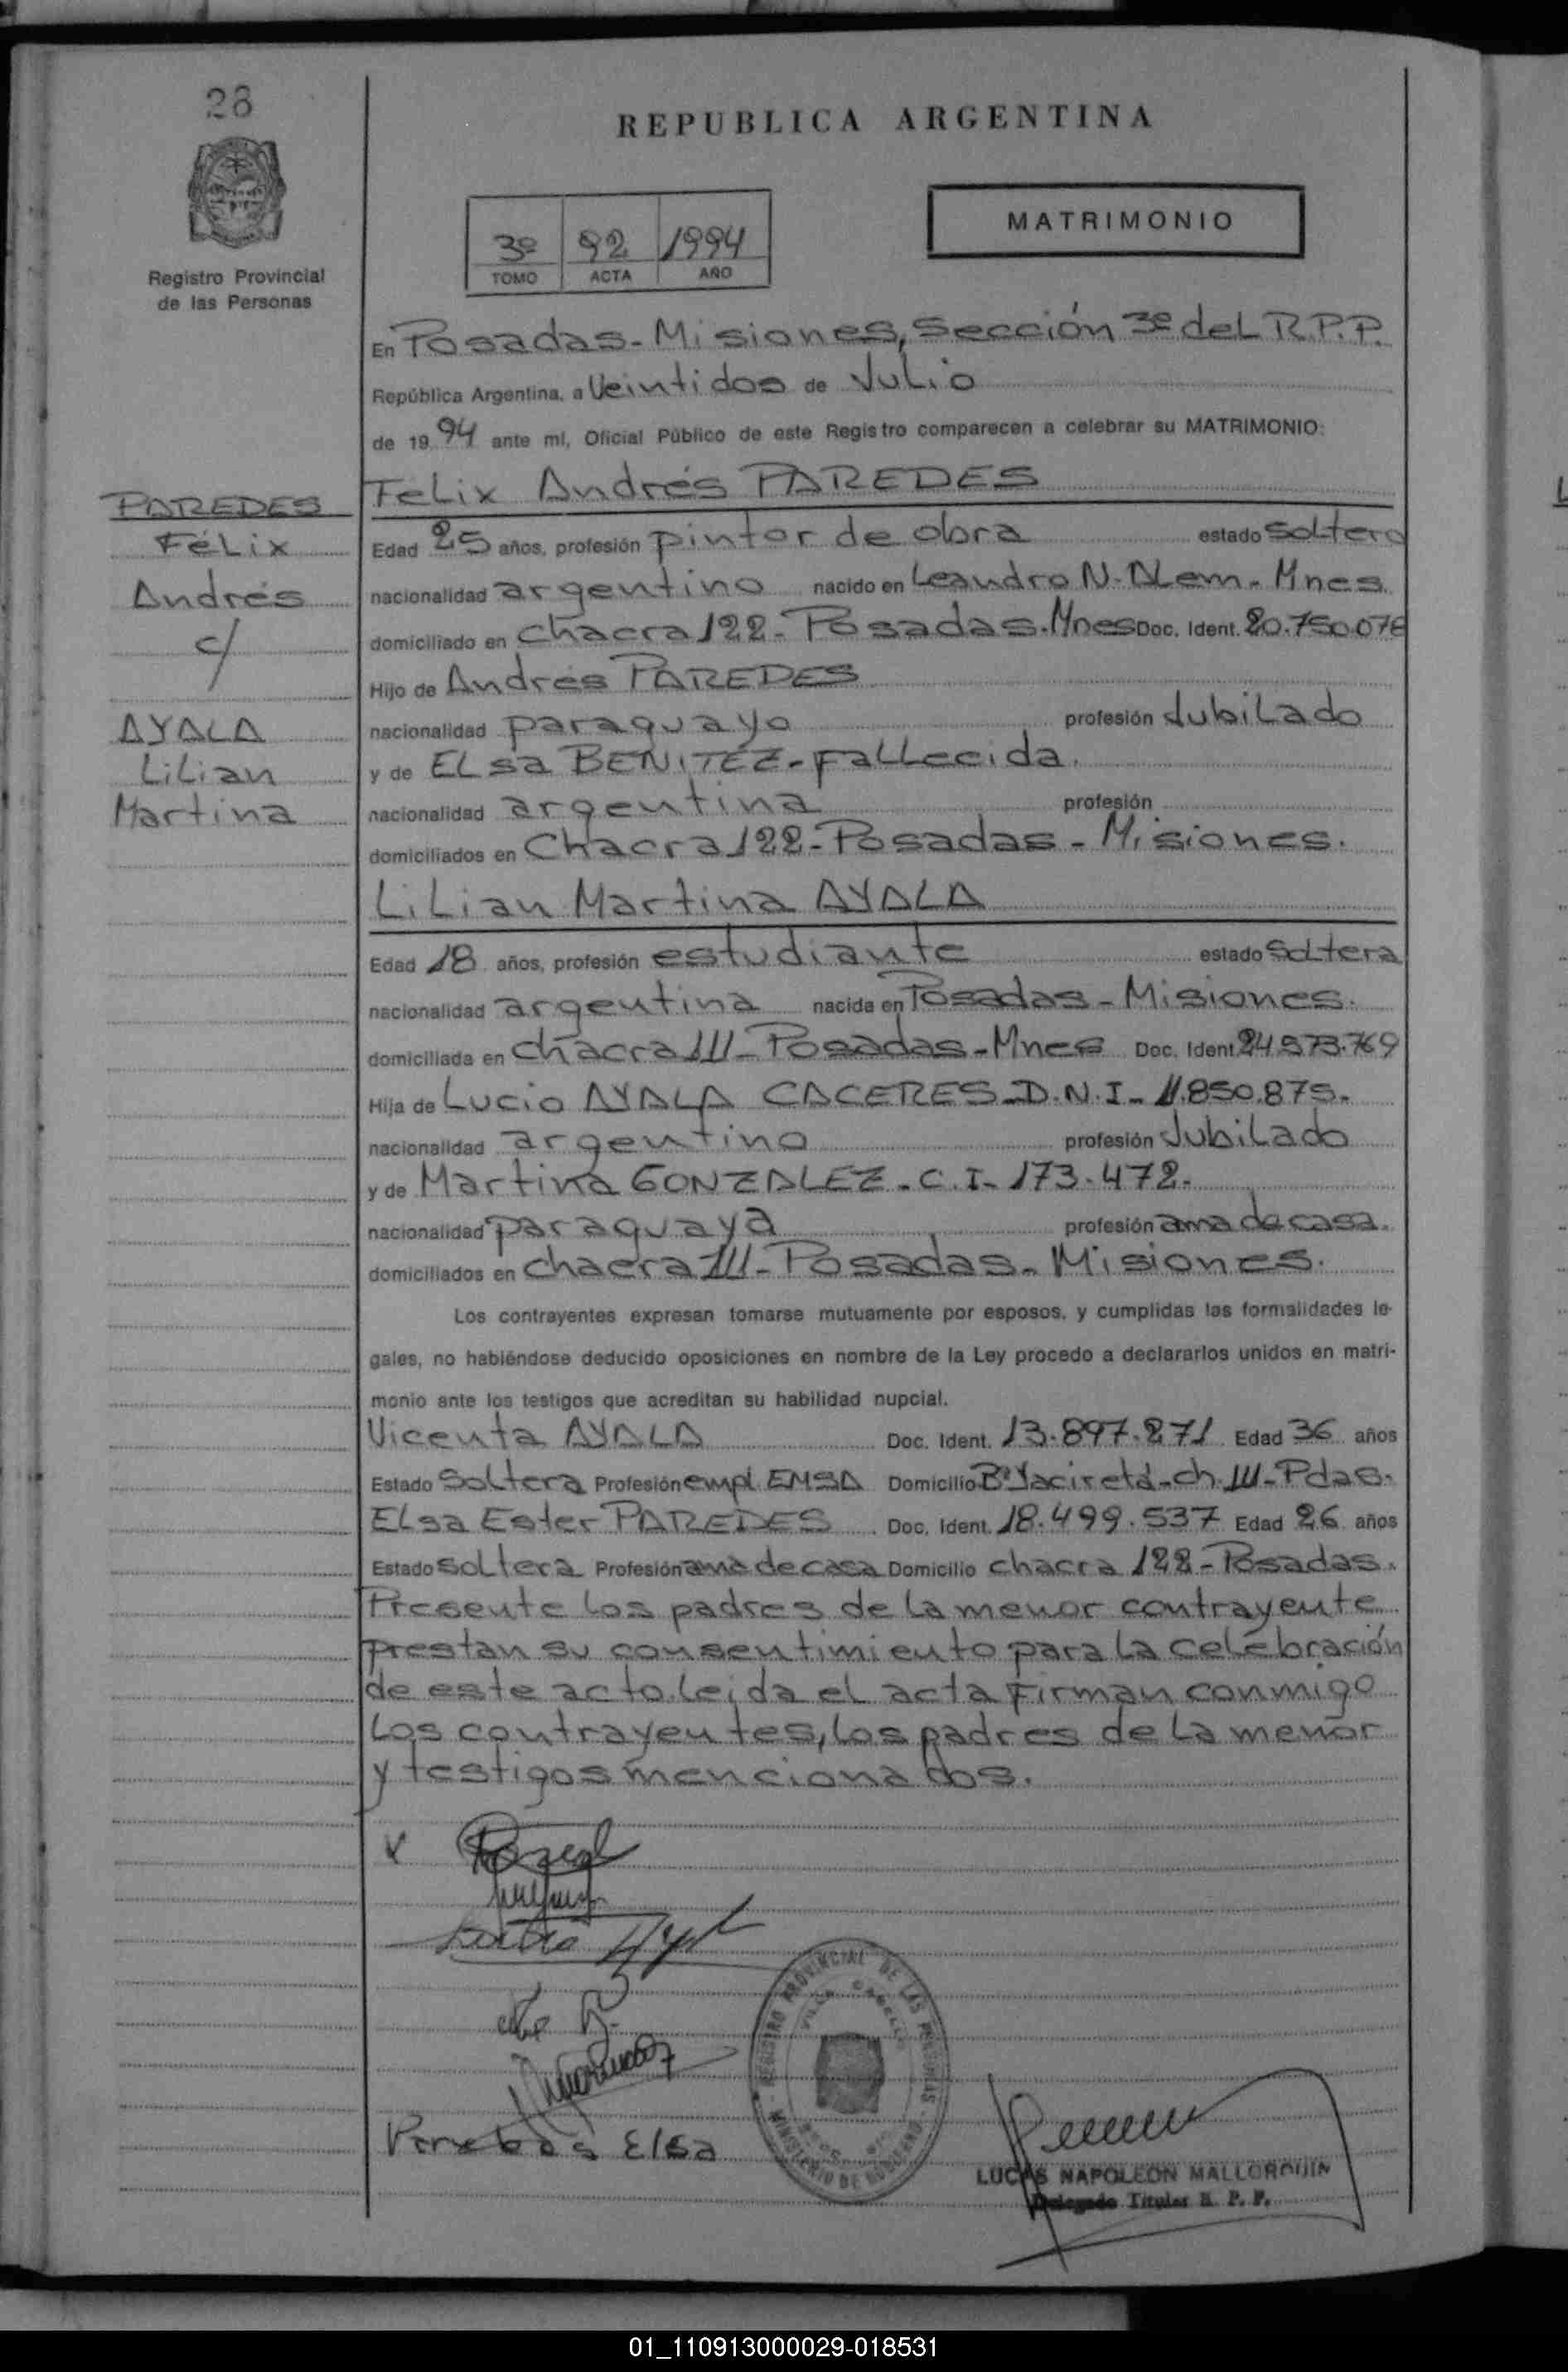 28
REPUBLICA ARGENTINA
Registro Provincial
de las Personas
3º 92 1994
TOMO ACTA AÑO
MATRIMONIO
En Posadas-Misiones, Sección 3º del R.P.P.
República Argentina, a Veintidos de Julio
de 1994 ante mí, Oficial Público de este Registro comparecen a celebrar su MATRIMONIO:
PAREDES
Félix
Andrés
c/
AYALA
Lilian
Martina
Felix Andrés PAREDES
Edad 25 años, profesión pintor de obra estado soltero
nacionalidad argentino nacido en Leandro N. Alem-Mnes.
domiciliado en chacra 122-Posadas-Mnes Doc. Ident. 20.750.078
Hijo de Andrés PAREDES
nacionalidad paraguayo profesión Jubilado
y de Elsa BENITEZ-fallecida.
nacionalidad argentina profesión
domiciliados en Chacra 122-Posadas-Misiones.
Lilian Martina AYALA
Edad 18 años, profesión estudiante estado Soltera
nacionalidad argentina nacida en Posadas-Misiones.
domiciliada en chacra 111-Posadas-Mnes Doc. Ident. 24.573.769
Hija de Lucio AYALA CACERES-D.N.I-11.850.875.
nacionalidad argentino profesión Jubilado
y de Martina GONZALEZ-C.I-173.472.
nacionalidad paraguaya profesión ama de casa.
domiciliados en chacra 111-Posadas-Misiones.
Los contrayentes expresan tomarse mutuamente por esposos, y cumplidas las formalidades le-
gales, no habiéndose deducido oposiciones en nombre de la Ley procedo a declararlos unidos en matri-
monio ante los testigos que acreditan su habilidad nupcial.
Vicenta AYALA Doc. Ident. 13.897.271 Edad 36 años
Estado Soltera Profesión empl. EMSA Domicilio Bº Yacireta-ch. 111-Pdas.
Elsa Ester PAREDES Doc. Ident. 18.499.537 Edad 26 años
Estado soltera Profesión ama de casa Domicilio chacra 122-Posadas.
Presente los padres de la menor contrayente
prestan su consentimiento para la celebración
de este acto. leída el acta firman conmigo
los contrayentes, los padres de la menor
y testigos mencionados.
Paredes Elsa
REGISTRO PROVINCIAL DE LAS PERSONAS
MINISTERIO DE GOBIERNO
LUCAS NAPOLEON MALLORQUIN
Delegado Titular R. P. P.
01_110913000029-018531